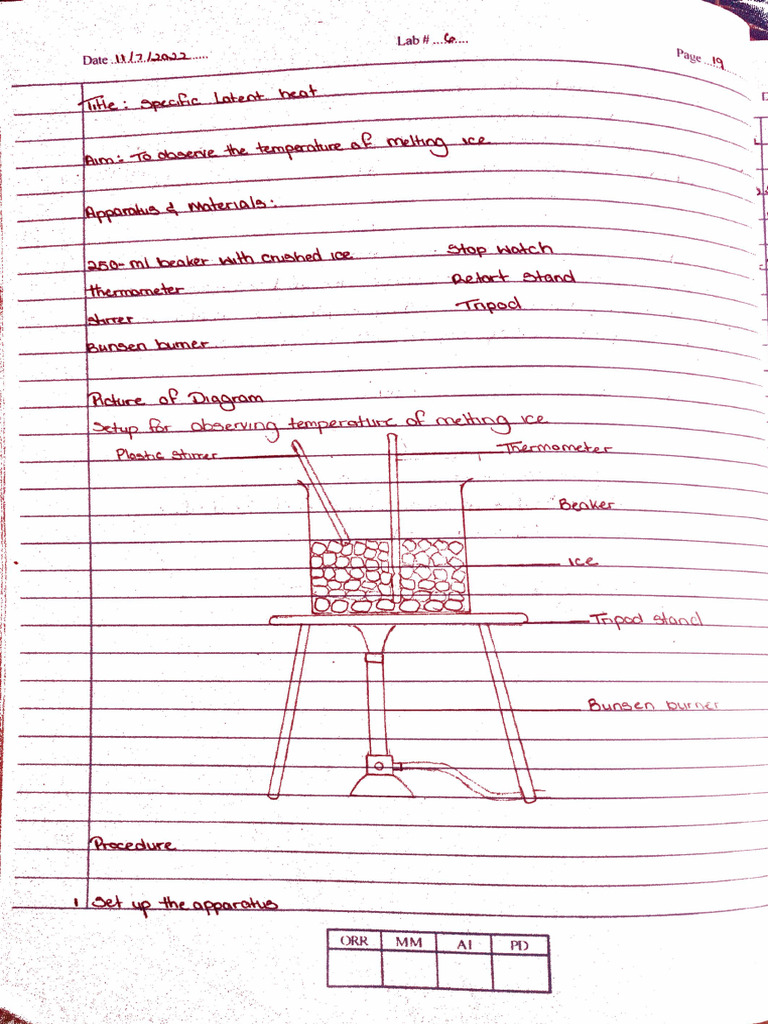 Lab # ...6....
Date ..11/7/2022.....
Page ..19
Title: Specific Latent heat
Aim: To observe the temperature of melting ice
Apparatus & Materials:
250-ml beaker with crushed ice
Stop watch
thermometer
Retort stand
stirrer
Tripod
Bunsen burner
Picture of Diagram
Setup for observing temperature of melting ice
Plastic stirrer
Thermometer
Beaker
Ice
Tripod stand
Bunsen burner
Procedure
1 Set up the apparatus
ORR MM AI PD